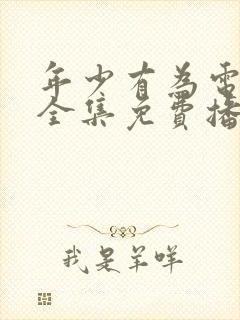 年少有為電
全集免費播
我是羊咩